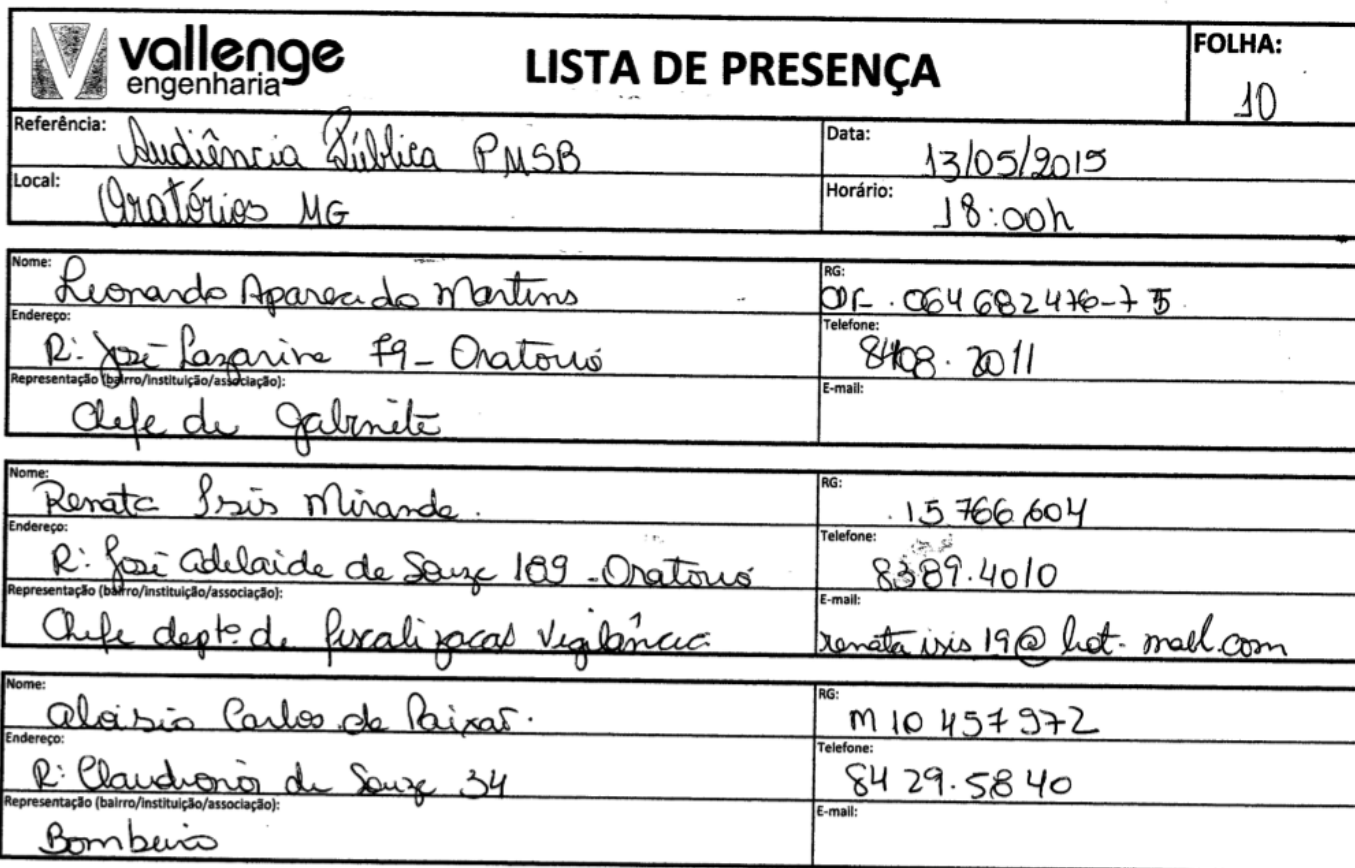 vallenge
engenharia
LISTA DE PRESENÇA
FOLHA:
10
Referência: Audiência Pública PMSB
Data: 13/05/2015
Local: Oratórios MG
Horário: 18:00h
Nome: Leonardo Aparecido Martins
RG: 064682476-75
Endereço: R: José Lazarine 79 - Oratorio
Telefone: 8408.2011
Representação (bairro/instituição/associação):
Chefe de Gabinete
E-mail:
Nome: Renata Isis Miranda.
RG: .15.766.604
Endereço: R: José Adelaide de Souza 189 - Oratorio
Telefone: 8389.4010
Representação (bairro/instituição/associação):
Chefe deptº de fiscalizacao Vigilância
E-mail: renata isis 19@hot-mail.com
Nome: Aloisio Carlos da Paixao.
RG: M 10 457 972
Endereço: R: Claudionor de Souza 34
Telefone: 84 29.58 40
Representação (bairro/instituição/associação):
Bombeiro
E-mail: